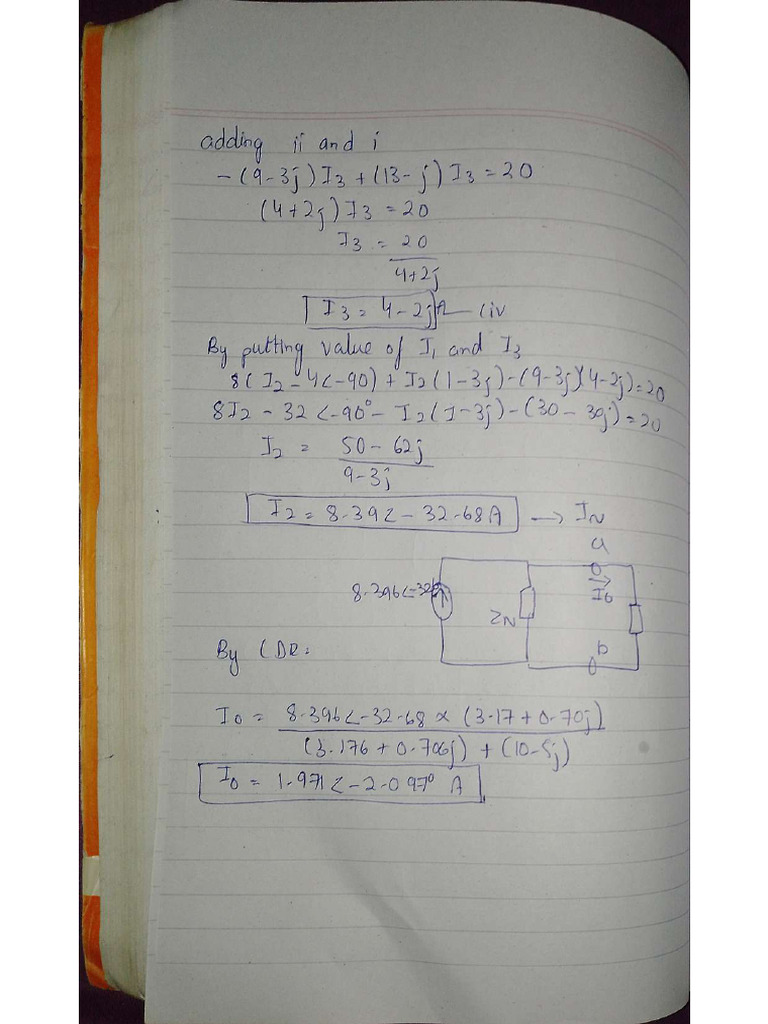 adding ii and i
-(9-3j)I3+(13-j)I3=20
(4+2j)I3=20
I3=20
4+2j
I3=4-2jA (iv
By putting value of I1 and I3
8(I2-4<-90)+I2(1-3j)-(9-3j)(4-2j)=20
8I2-32<-90°-I2(1-3j)-(30-30j)=20
I2= 50-62j
9-3j
I2=8.39<-32.68A → IN
a
8.396<-32
ZN
I0
b
By CDR:
I0= 8.396<-32.68×(3.17+0.70j)
(3.176+0.706j)+(10-5j)
I0=1.971<-2.097° A